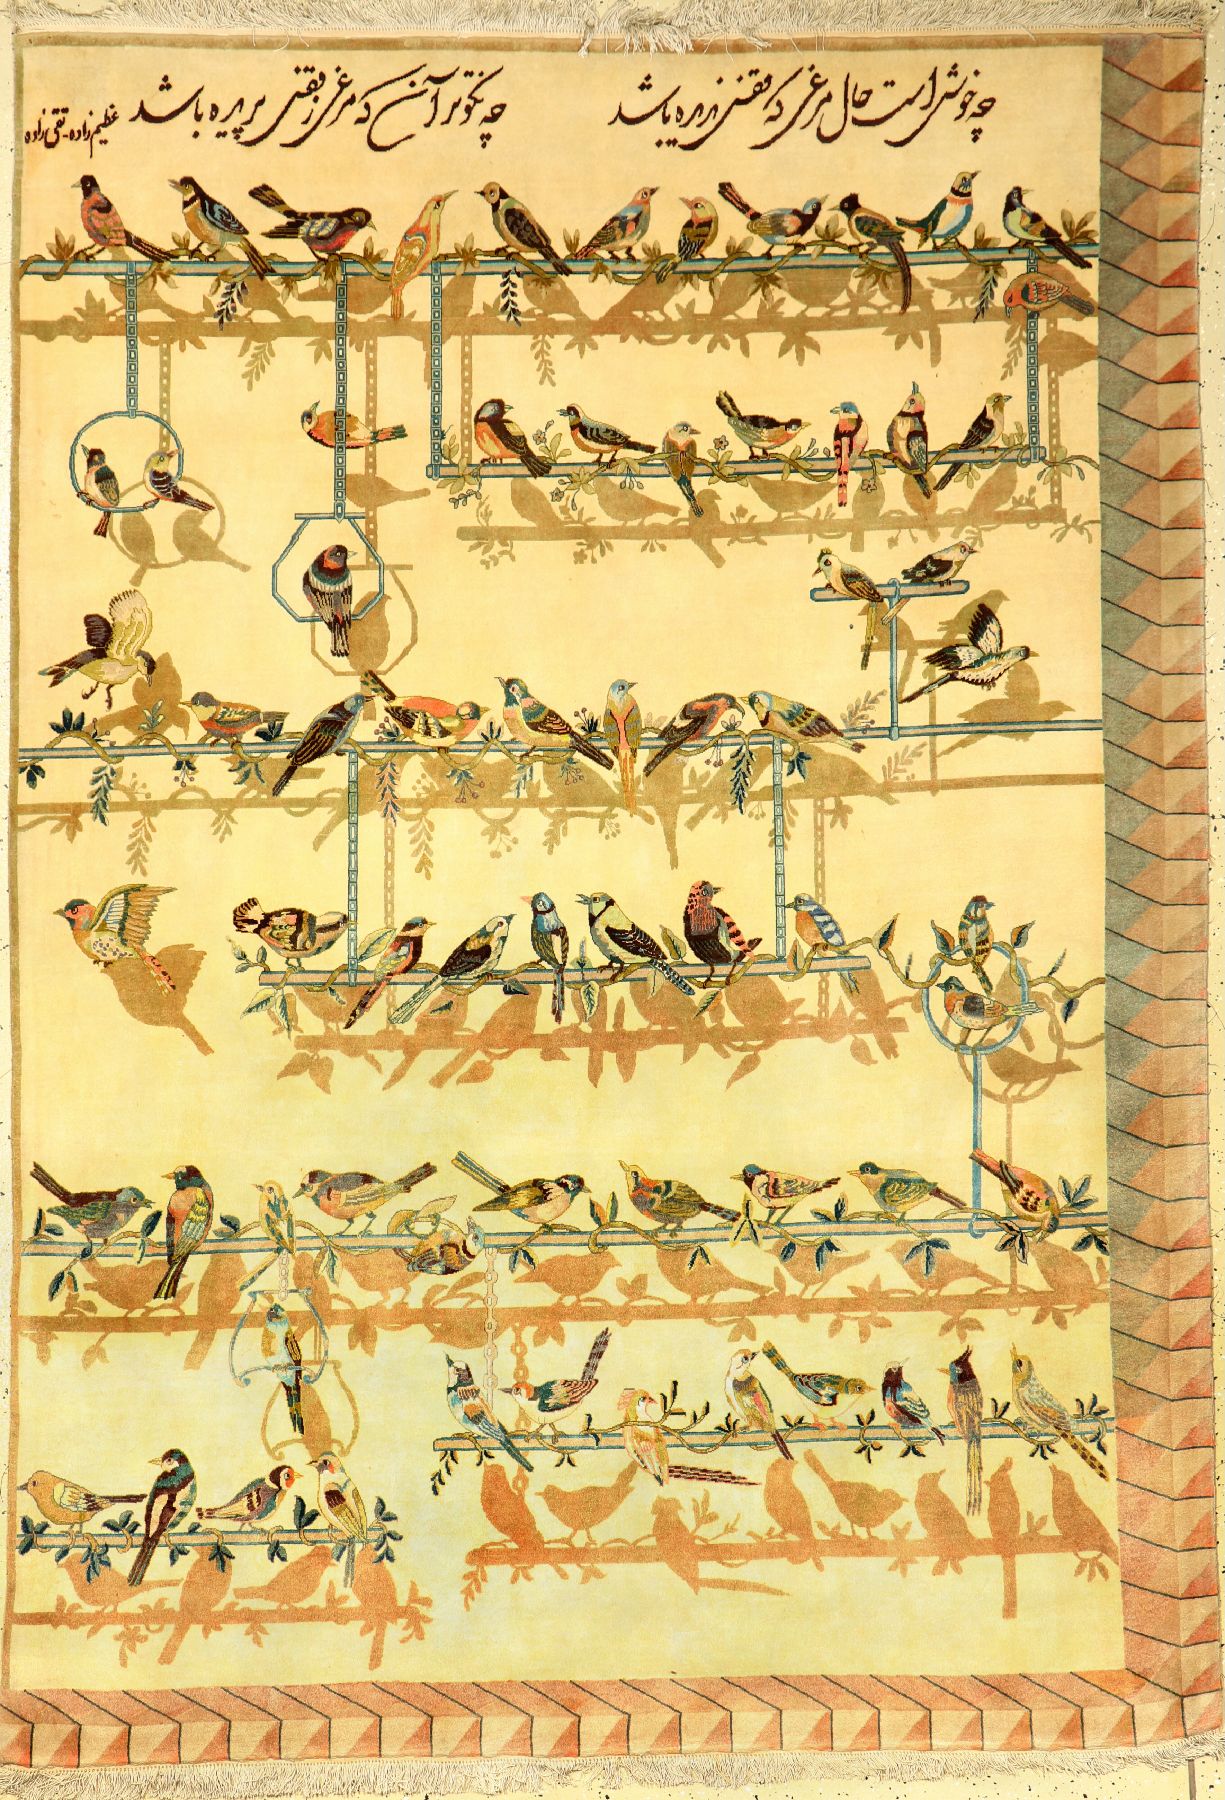 چه خوش است حال مرغی که قفس ندیده باشد
چه نکوتر آن که مرغی ز قفس پریده باشد
عظیم زاده - تقی زاده